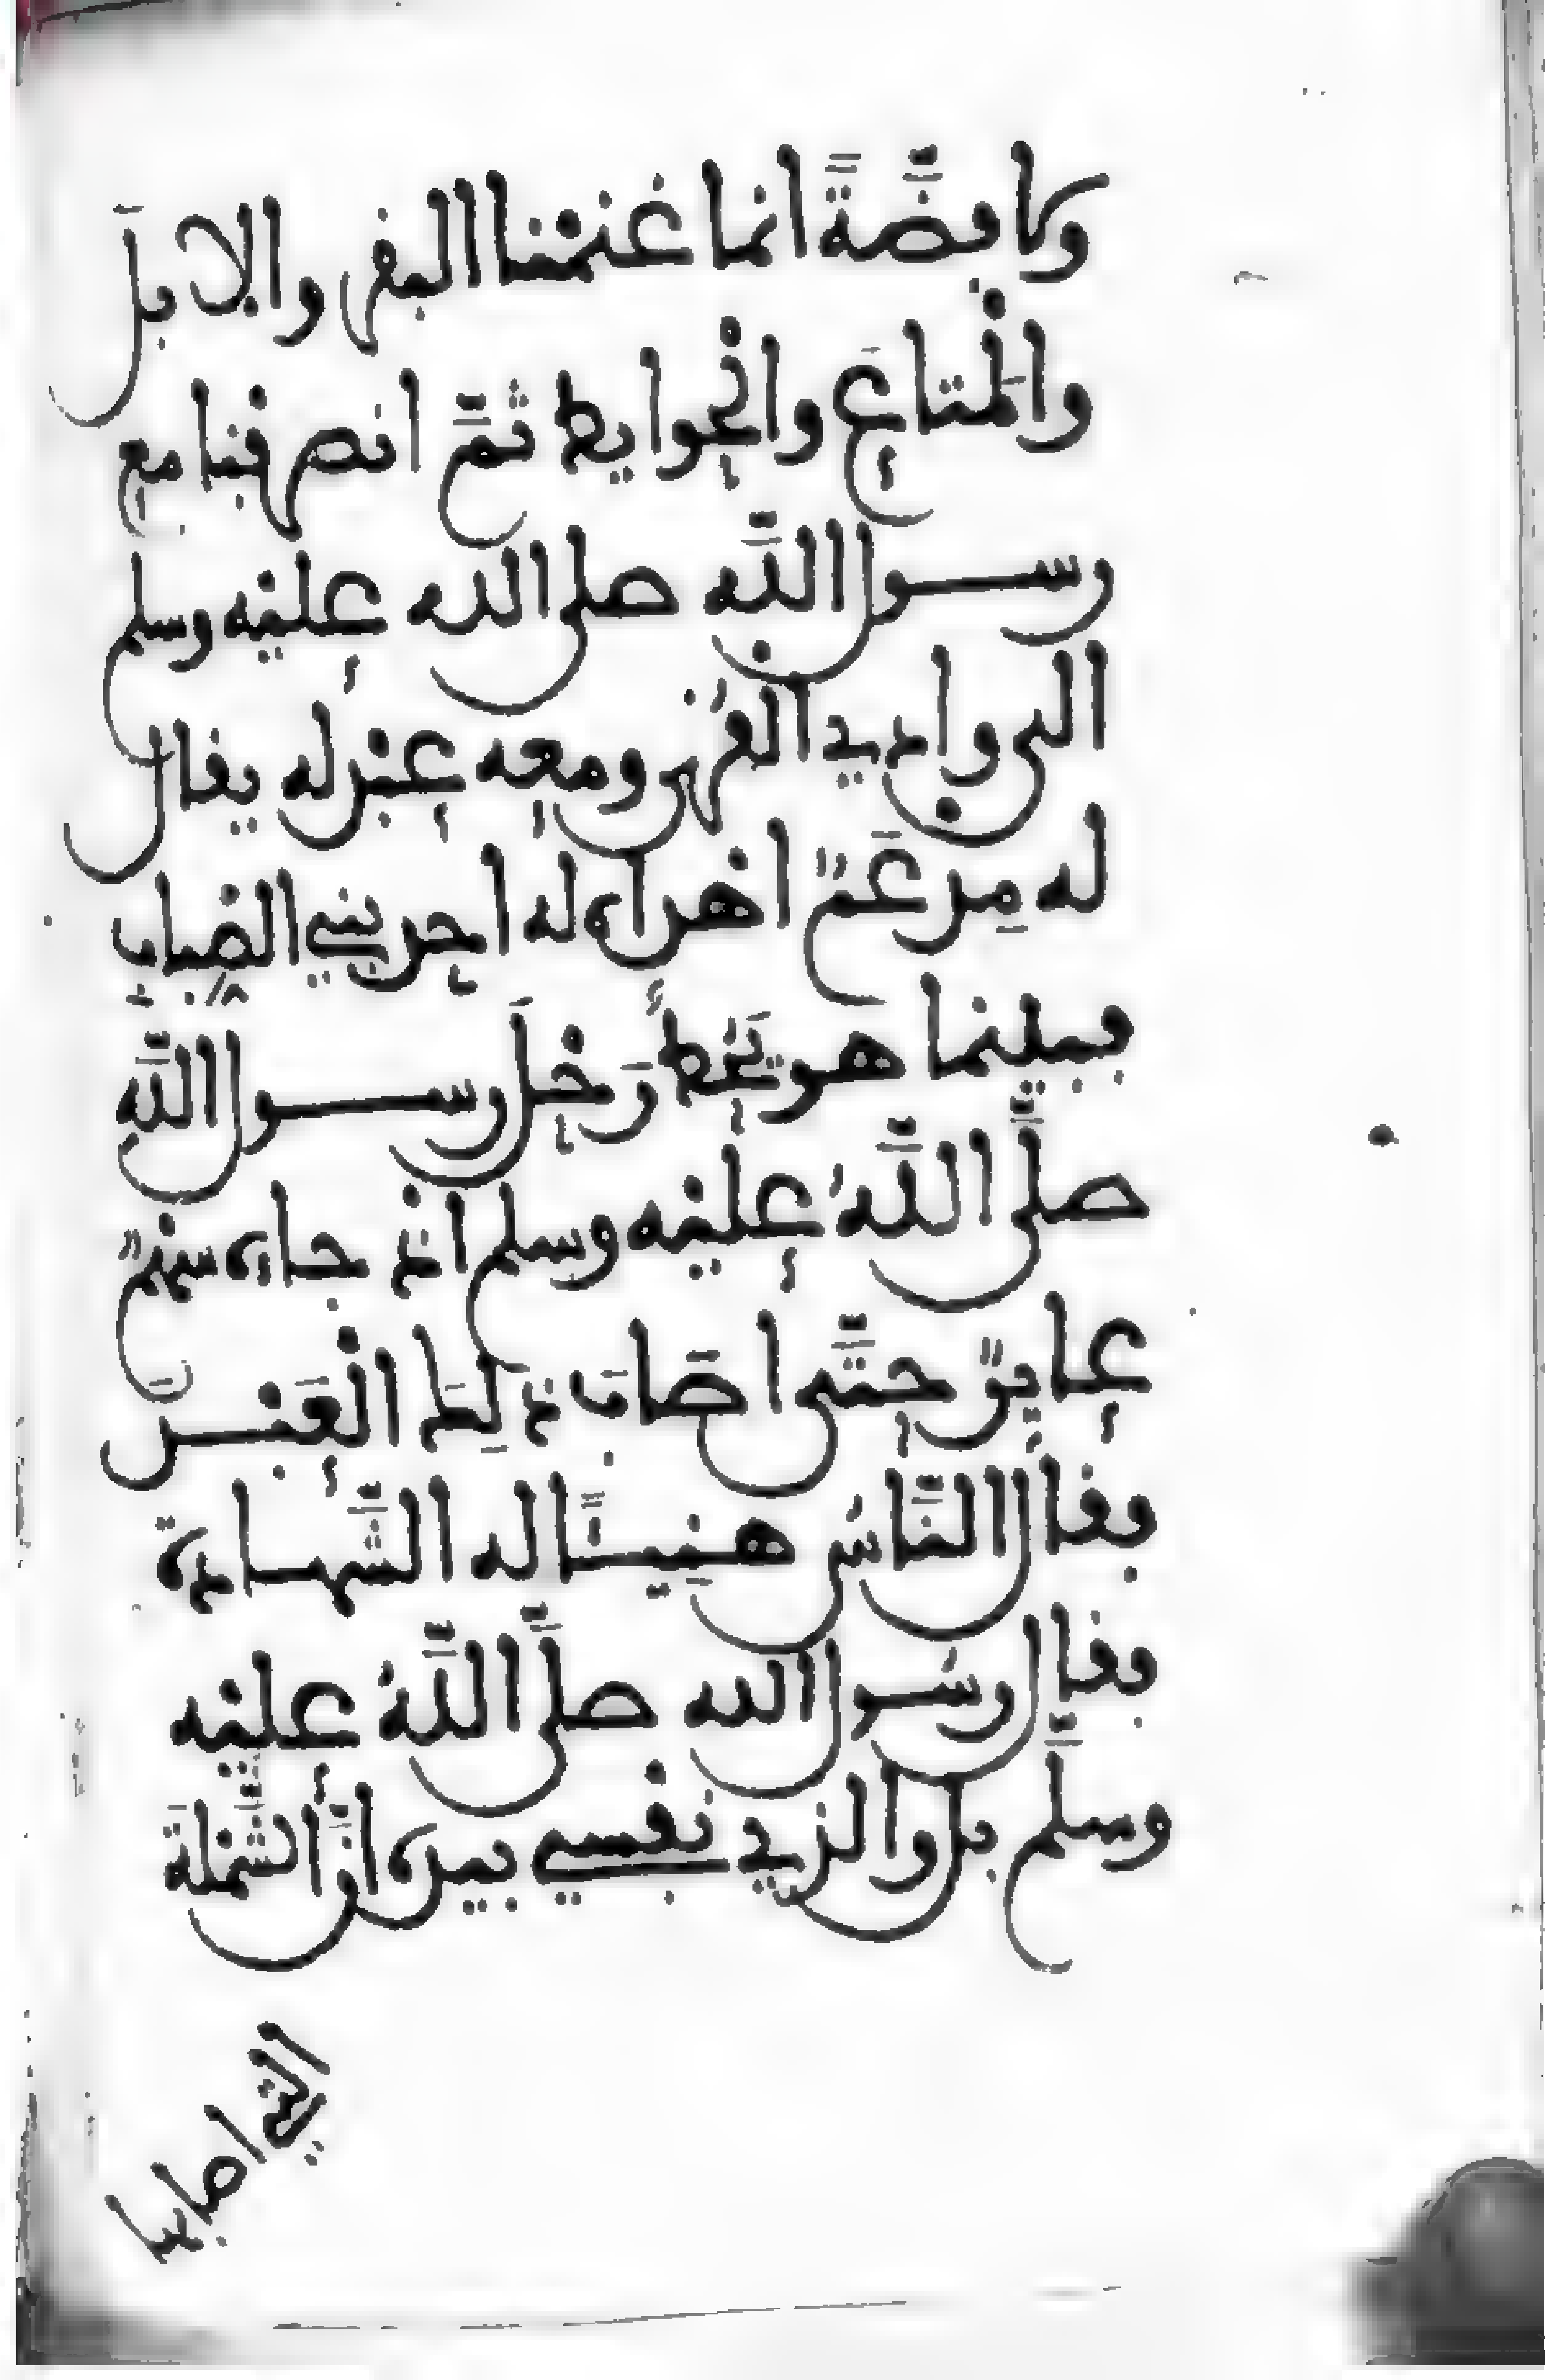 ولا فضَّةً انما غنمْنا البفر والابلَ
والْمتاعَ والْحوايط ثمَّ انصرفنا مع
رسول اللَّه صلى الله عليْه وسلم
الى وادي الْفُرى ومعه عبْد له يفال
له مِدعَمٌ اهداه له احد بني الضِباب
فبينما هو يَحُطُّ رَحْلَ رسول اللَّهِ
صلَّى اللَّهُ عليْه وسلم اذ جاءه سهْمٌ
عايرٌ حتَّى اصَابَ ذلِكَ الْعَبْدَ
ففال النَّاسُ هنِيـًٔا له الشَّهادة
ففال رسُول الله صلَّى اللَّهُ عليْه
وسلَّم بل والذي نفْسي بيده انَّ الشَّمْلةَ
التي اصابها